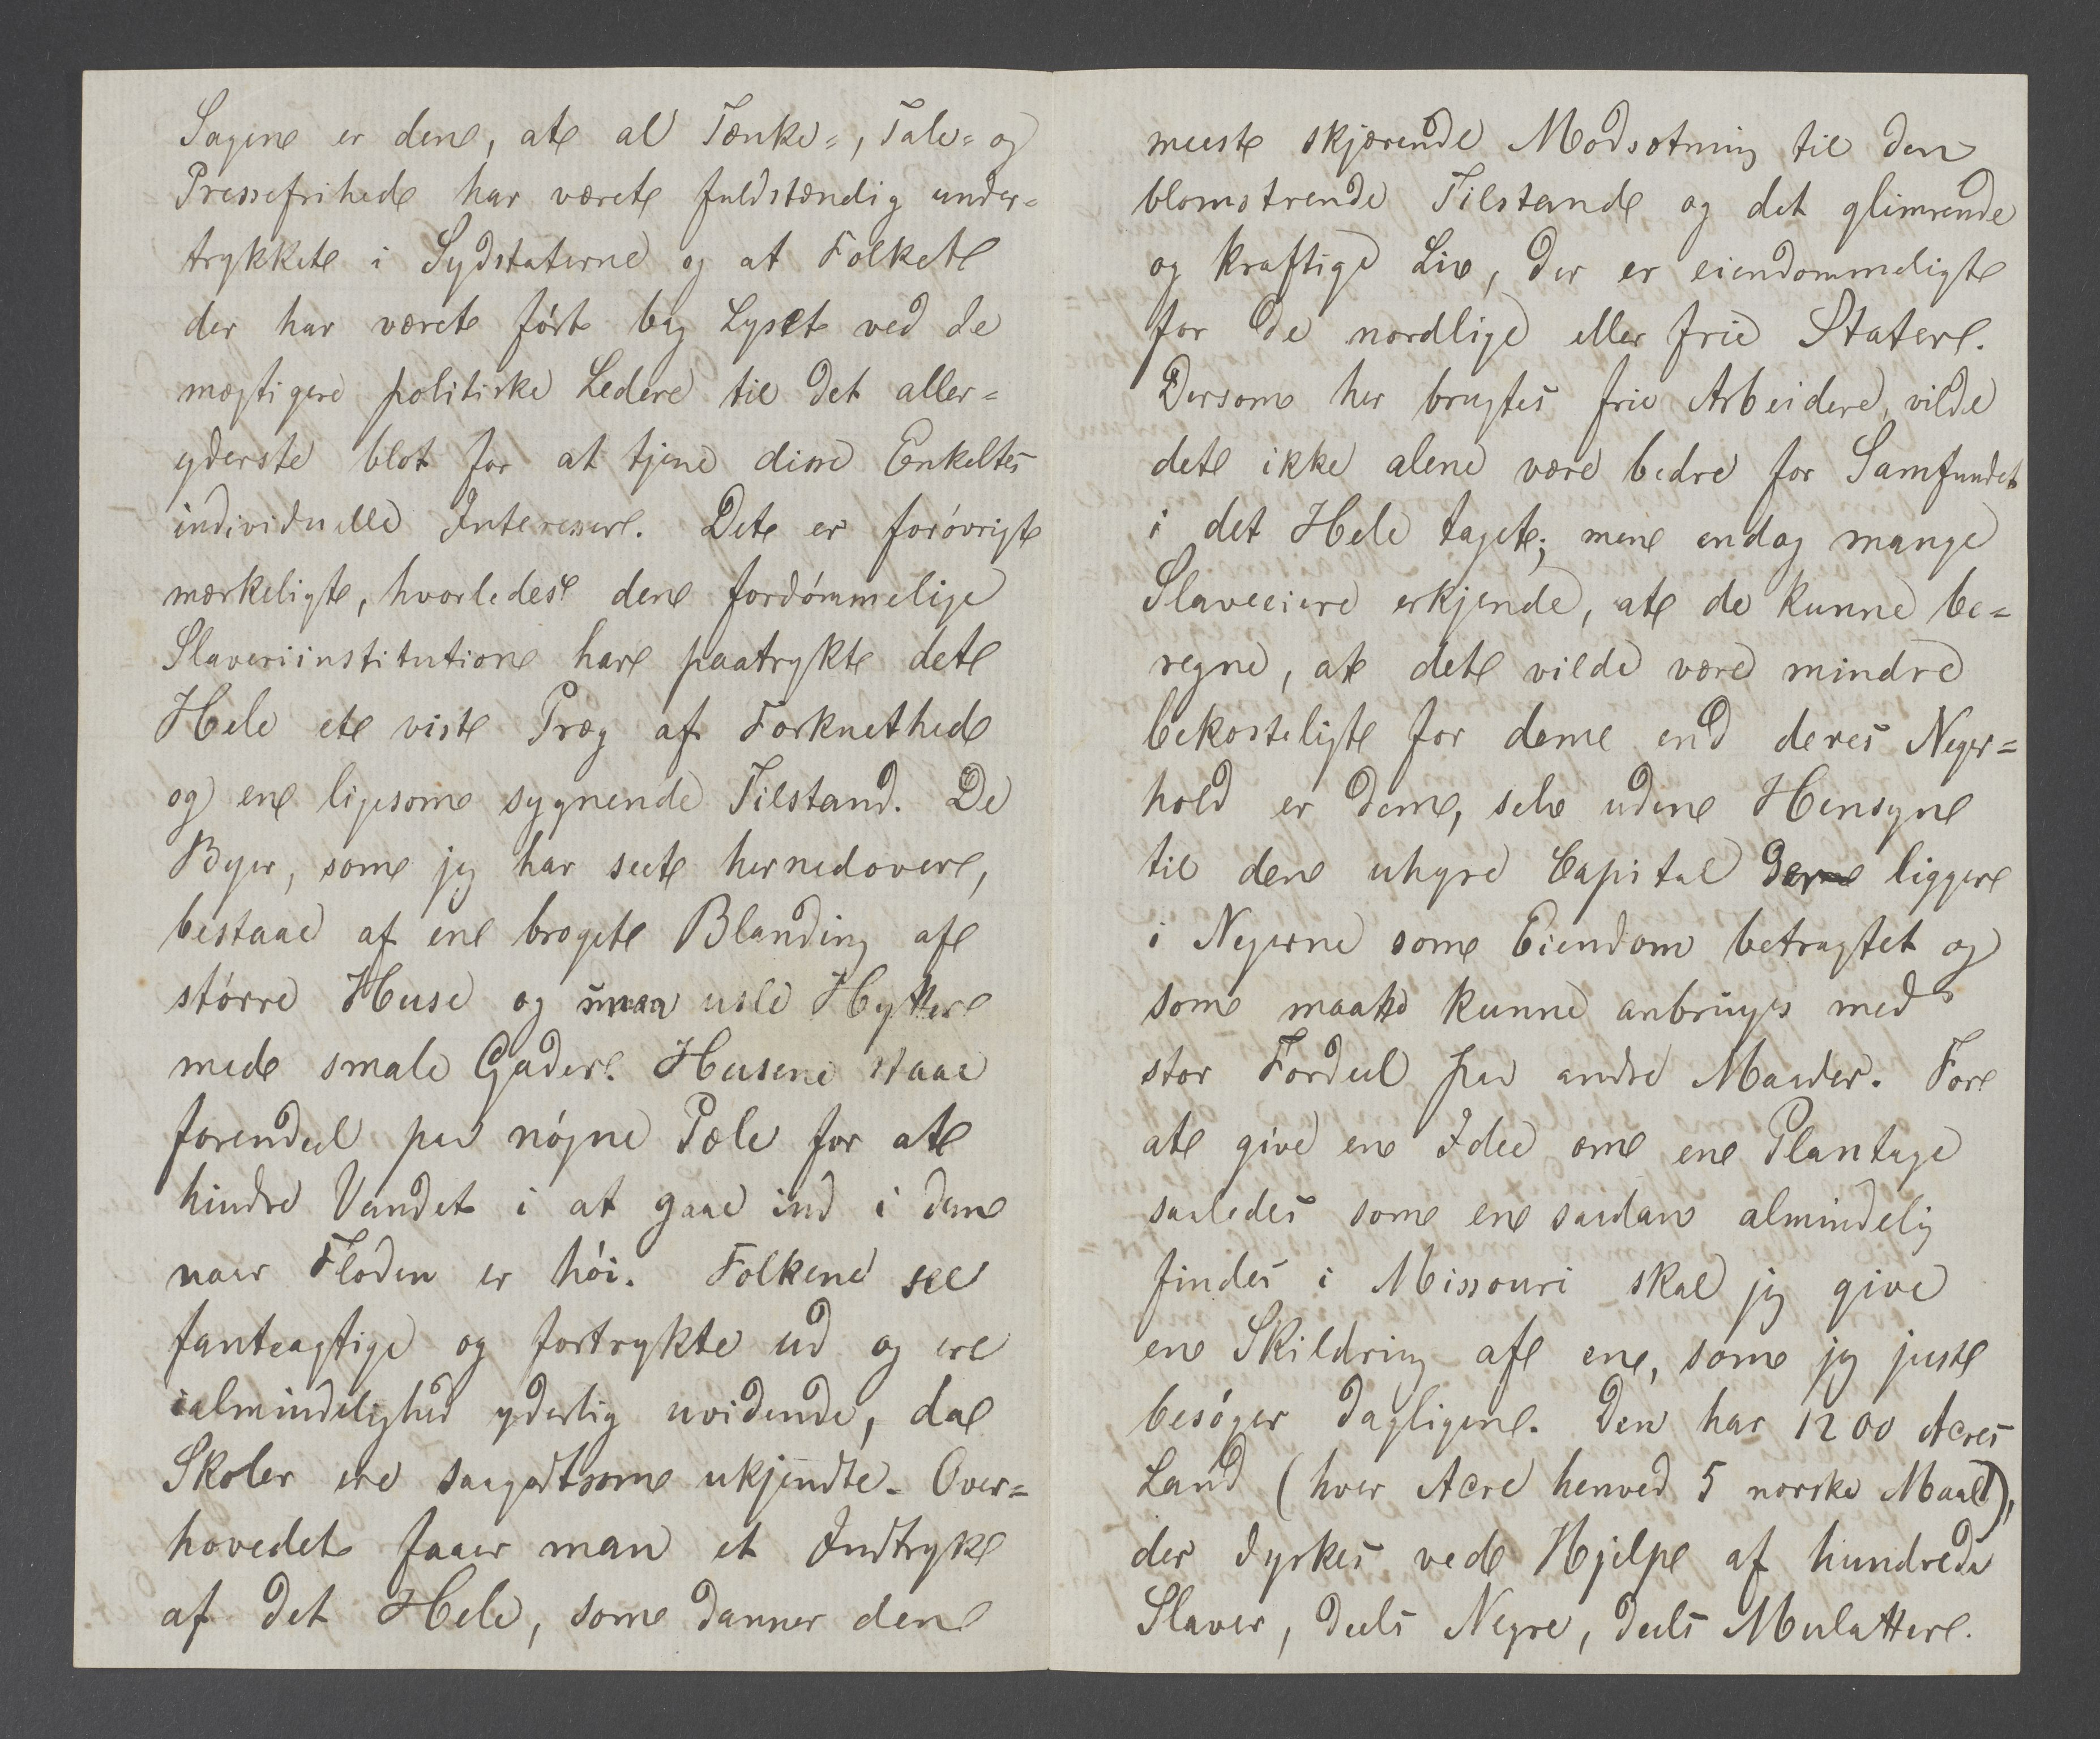 Sagen er den, at al Tænke-, Tale- og
Pressefrihed har været fuldstændig under-
trykket i Sydstaterne og at Folket
der har været ført bag Lyset ved de
mægtigere politiske Ledere til det aller-
yderste blot for at tjene disse Enkeltes
individuelle Interesser. Det er forøvrigt
mærkeligt, hvorledes den fordømmelige
Slaveriinstitution har paatrykt det
Hele et vist Præg af Forknethed
og en ligesom sygnende Tilstand. De
Byer, som jeg har seet hernedover,
bestaae af en broget Blanding af
større Huse og smaa usle Hytter
med smale Gader. Husene staae
forendeel paa nøgne Pæle for at
hindre Vandet i at gaae ind i dem
naar Floden er høi. Folkene see
fanteagtige og fortrykte ud og ere
ialmindelighed yderlig uvidende, da
Skoler ere saagodtsom ukjendte. Over-
hovedet faaer man et Indtryk
af det Hele, som danner den
meest skjærende Modsætning til den
blomstrende Tilstand og det glimrende
og kraftige Liv, der er eiendommeligt
for de nordlige eller frie Stater.
Dersom her brugtes frie Arbeidere, vilde
det ikke alene være bedre for Samfundet
i det Hele taget; men endog mange
Slaveeiere erkjende, at de kunne be-
regne, at det vilde være mindre
bekosteligt for dem end deres Neger-
hold er dem, selv uden Hensyn
til den uhyre Capital der ligger
i Negerne som Eiendom betragtet og
som maatte kunne anbruges med
stor Fordeel paa andre Maader. For
at give en Idee om en Plantage
saaledes som en saadan almindelig
findes i Missouri skal jeg give
en Skildring af en, som jeg just
besøger dagligen. Den har 1200 Acres
Land (hver Acre henved 5 norske Maal),
der dyrkes ved Hjelp af hundrede
Slaver, deels Negre, deels Mulatter.